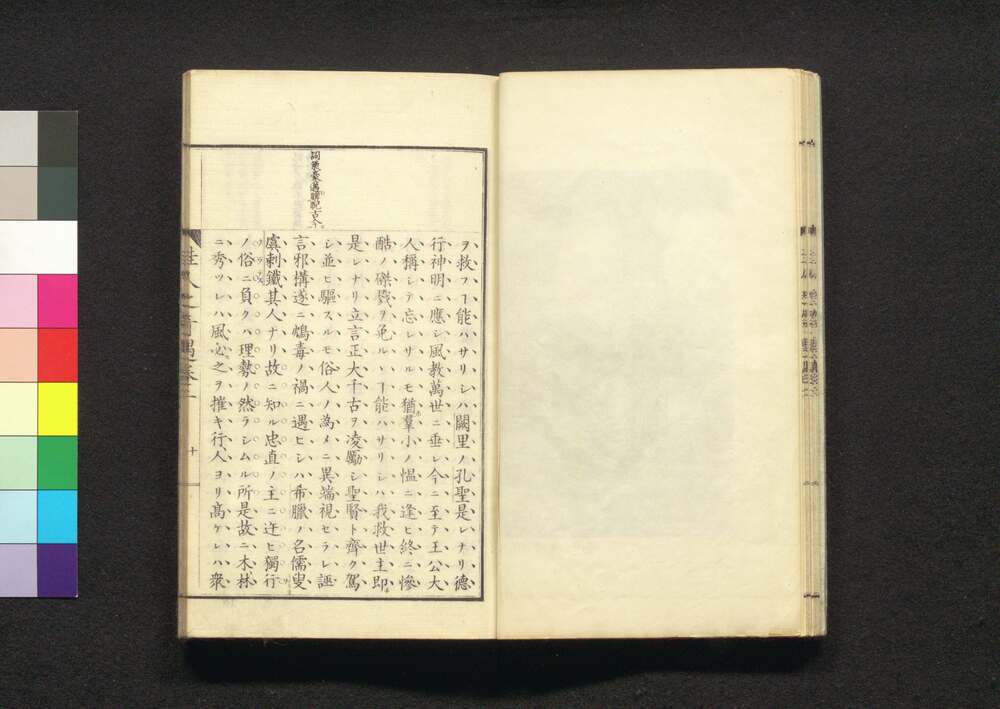 詞氣豪邁睥睨古今
ヲ救フヿ能ハサリシハ闕里ノ孔聖是レナリ德
行神明ニ應シ風教萬世ニ垂レ今ニ至テ王公大
人稱シテ忘レサルモ猶羣小ノ慍ニ逢ヒ終ニ慘
酷ノ磔戮ヲ免ルヽヿ能ハサリシハ我救世主即
是レナリ立言正大千古ヲ凌勵シ聖賢ト齊ク駕
シ並ヒ驅スルモ俗人ノ為メニ異端視セラレ誣
言邪搆遂ニ鴆毒ノ禍ニ遇ヒシハ希臘ノ名儒叟
虞剌鐵其人ナリ故ニ知ル忠直ノ主ニ迕ヒ獨行
ノ俗ニ負クハ理勢ノ然ラシムル所是故ニ木林
ニ秀ツレハ風必之ヲ摧キ行人ヨリ高ケレハ衆
佳人之奇遇卷二
十